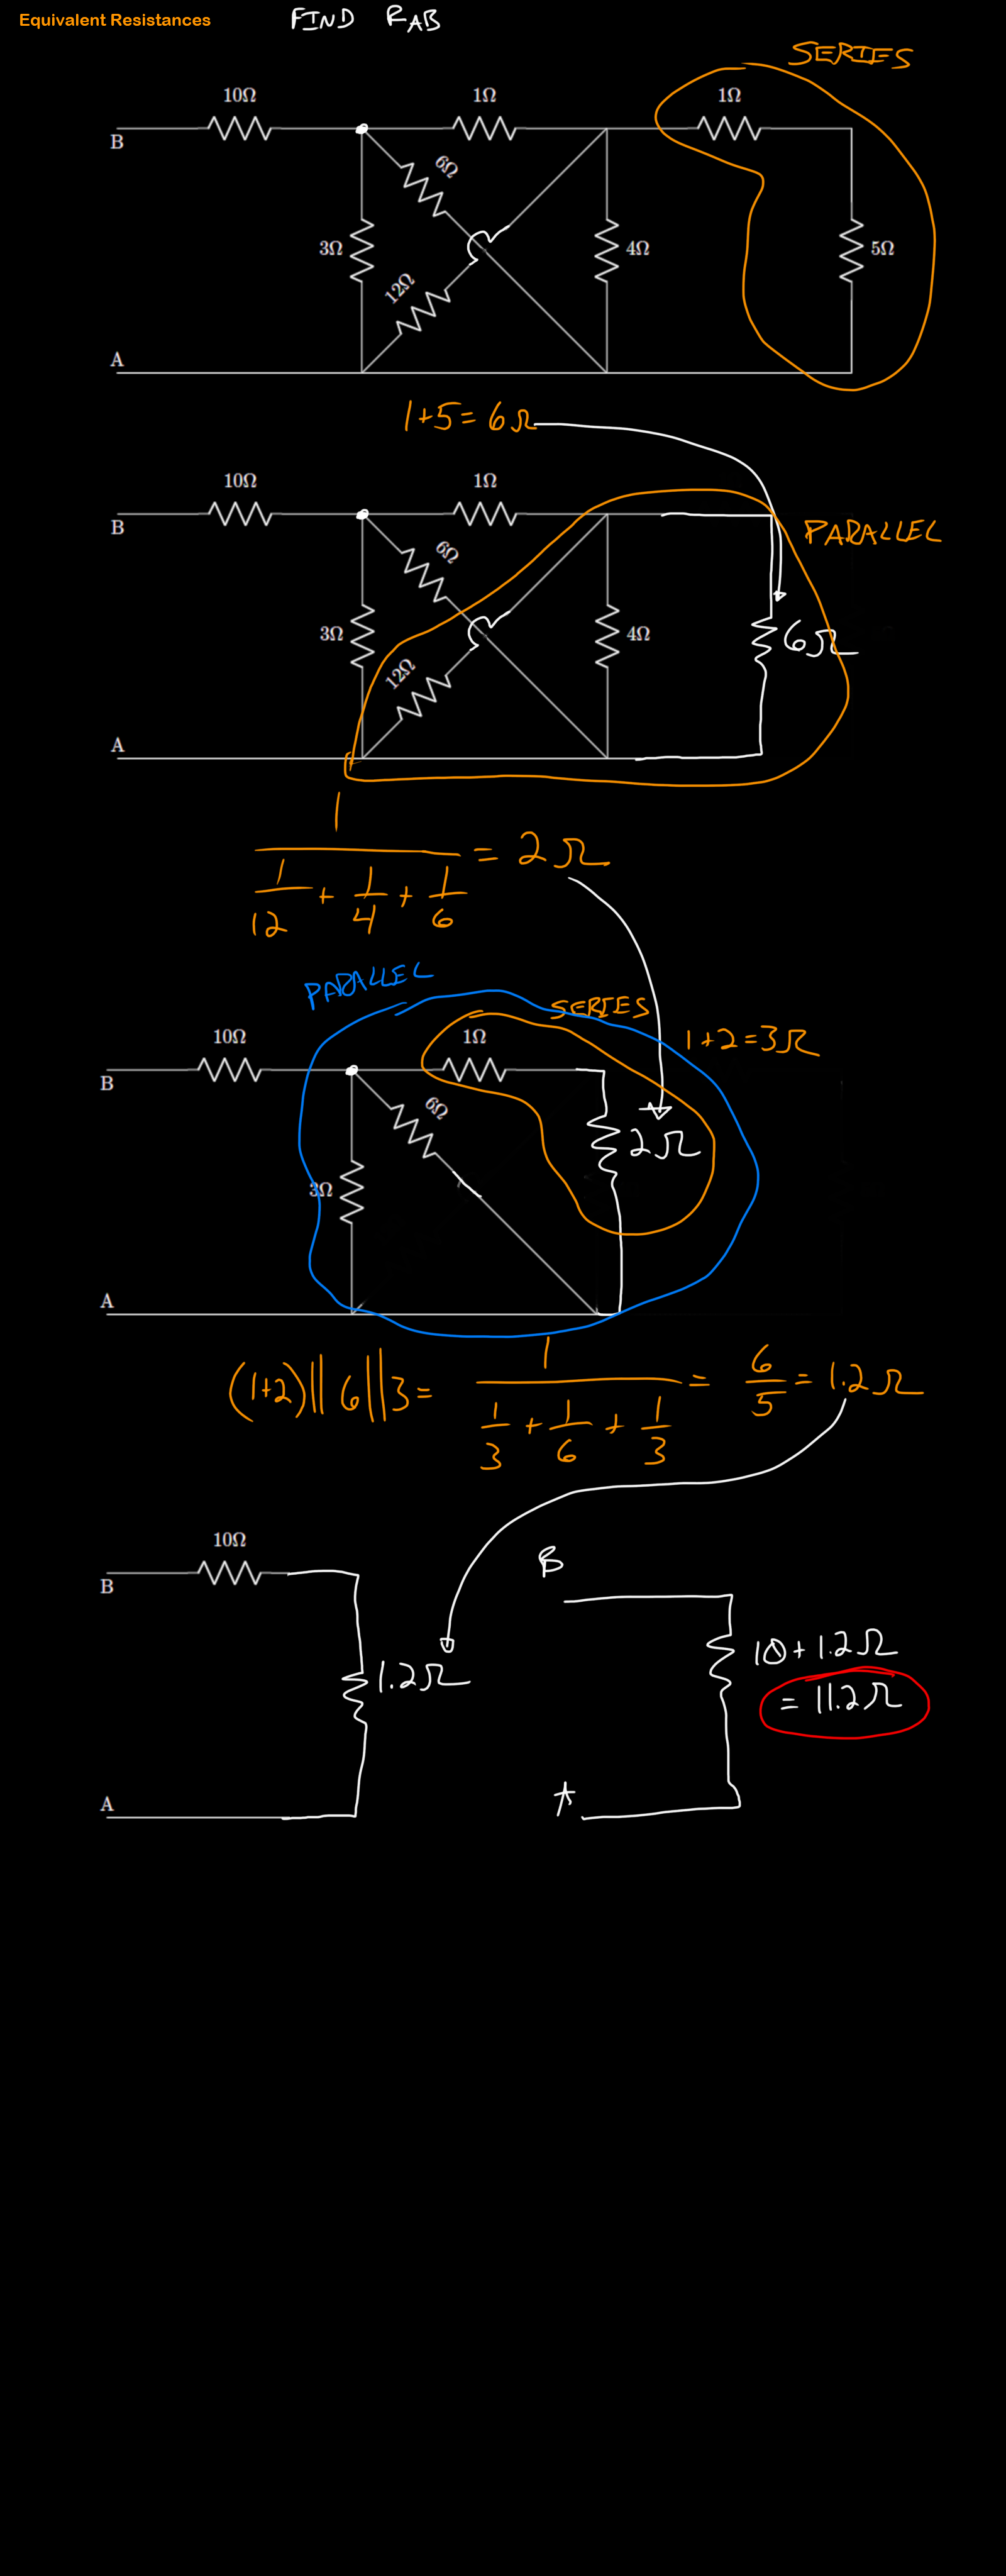 Equivalent Resistances FIND RAB
SERIES
10Ω 1Ω 1Ω
B
6Ω
3Ω 4Ω 5Ω
12Ω
A
1+5=6Ω
10Ω 1Ω
B PARALLEL
6Ω
3Ω 4Ω 6Ω
12Ω
A
1
___ = 2Ω
1/12 + 1/4 + 1/6
PARALLEL
SERIES
10Ω 1Ω 1+2=3Ω
B
6Ω
2Ω
3Ω
A
(1+2)||6||3= 1/(1/3 + 1/6 + 1/3) = 6/5 = 1.2Ω
10Ω B
B
10+1.2Ω
1.2Ω = 11.2Ω
A A